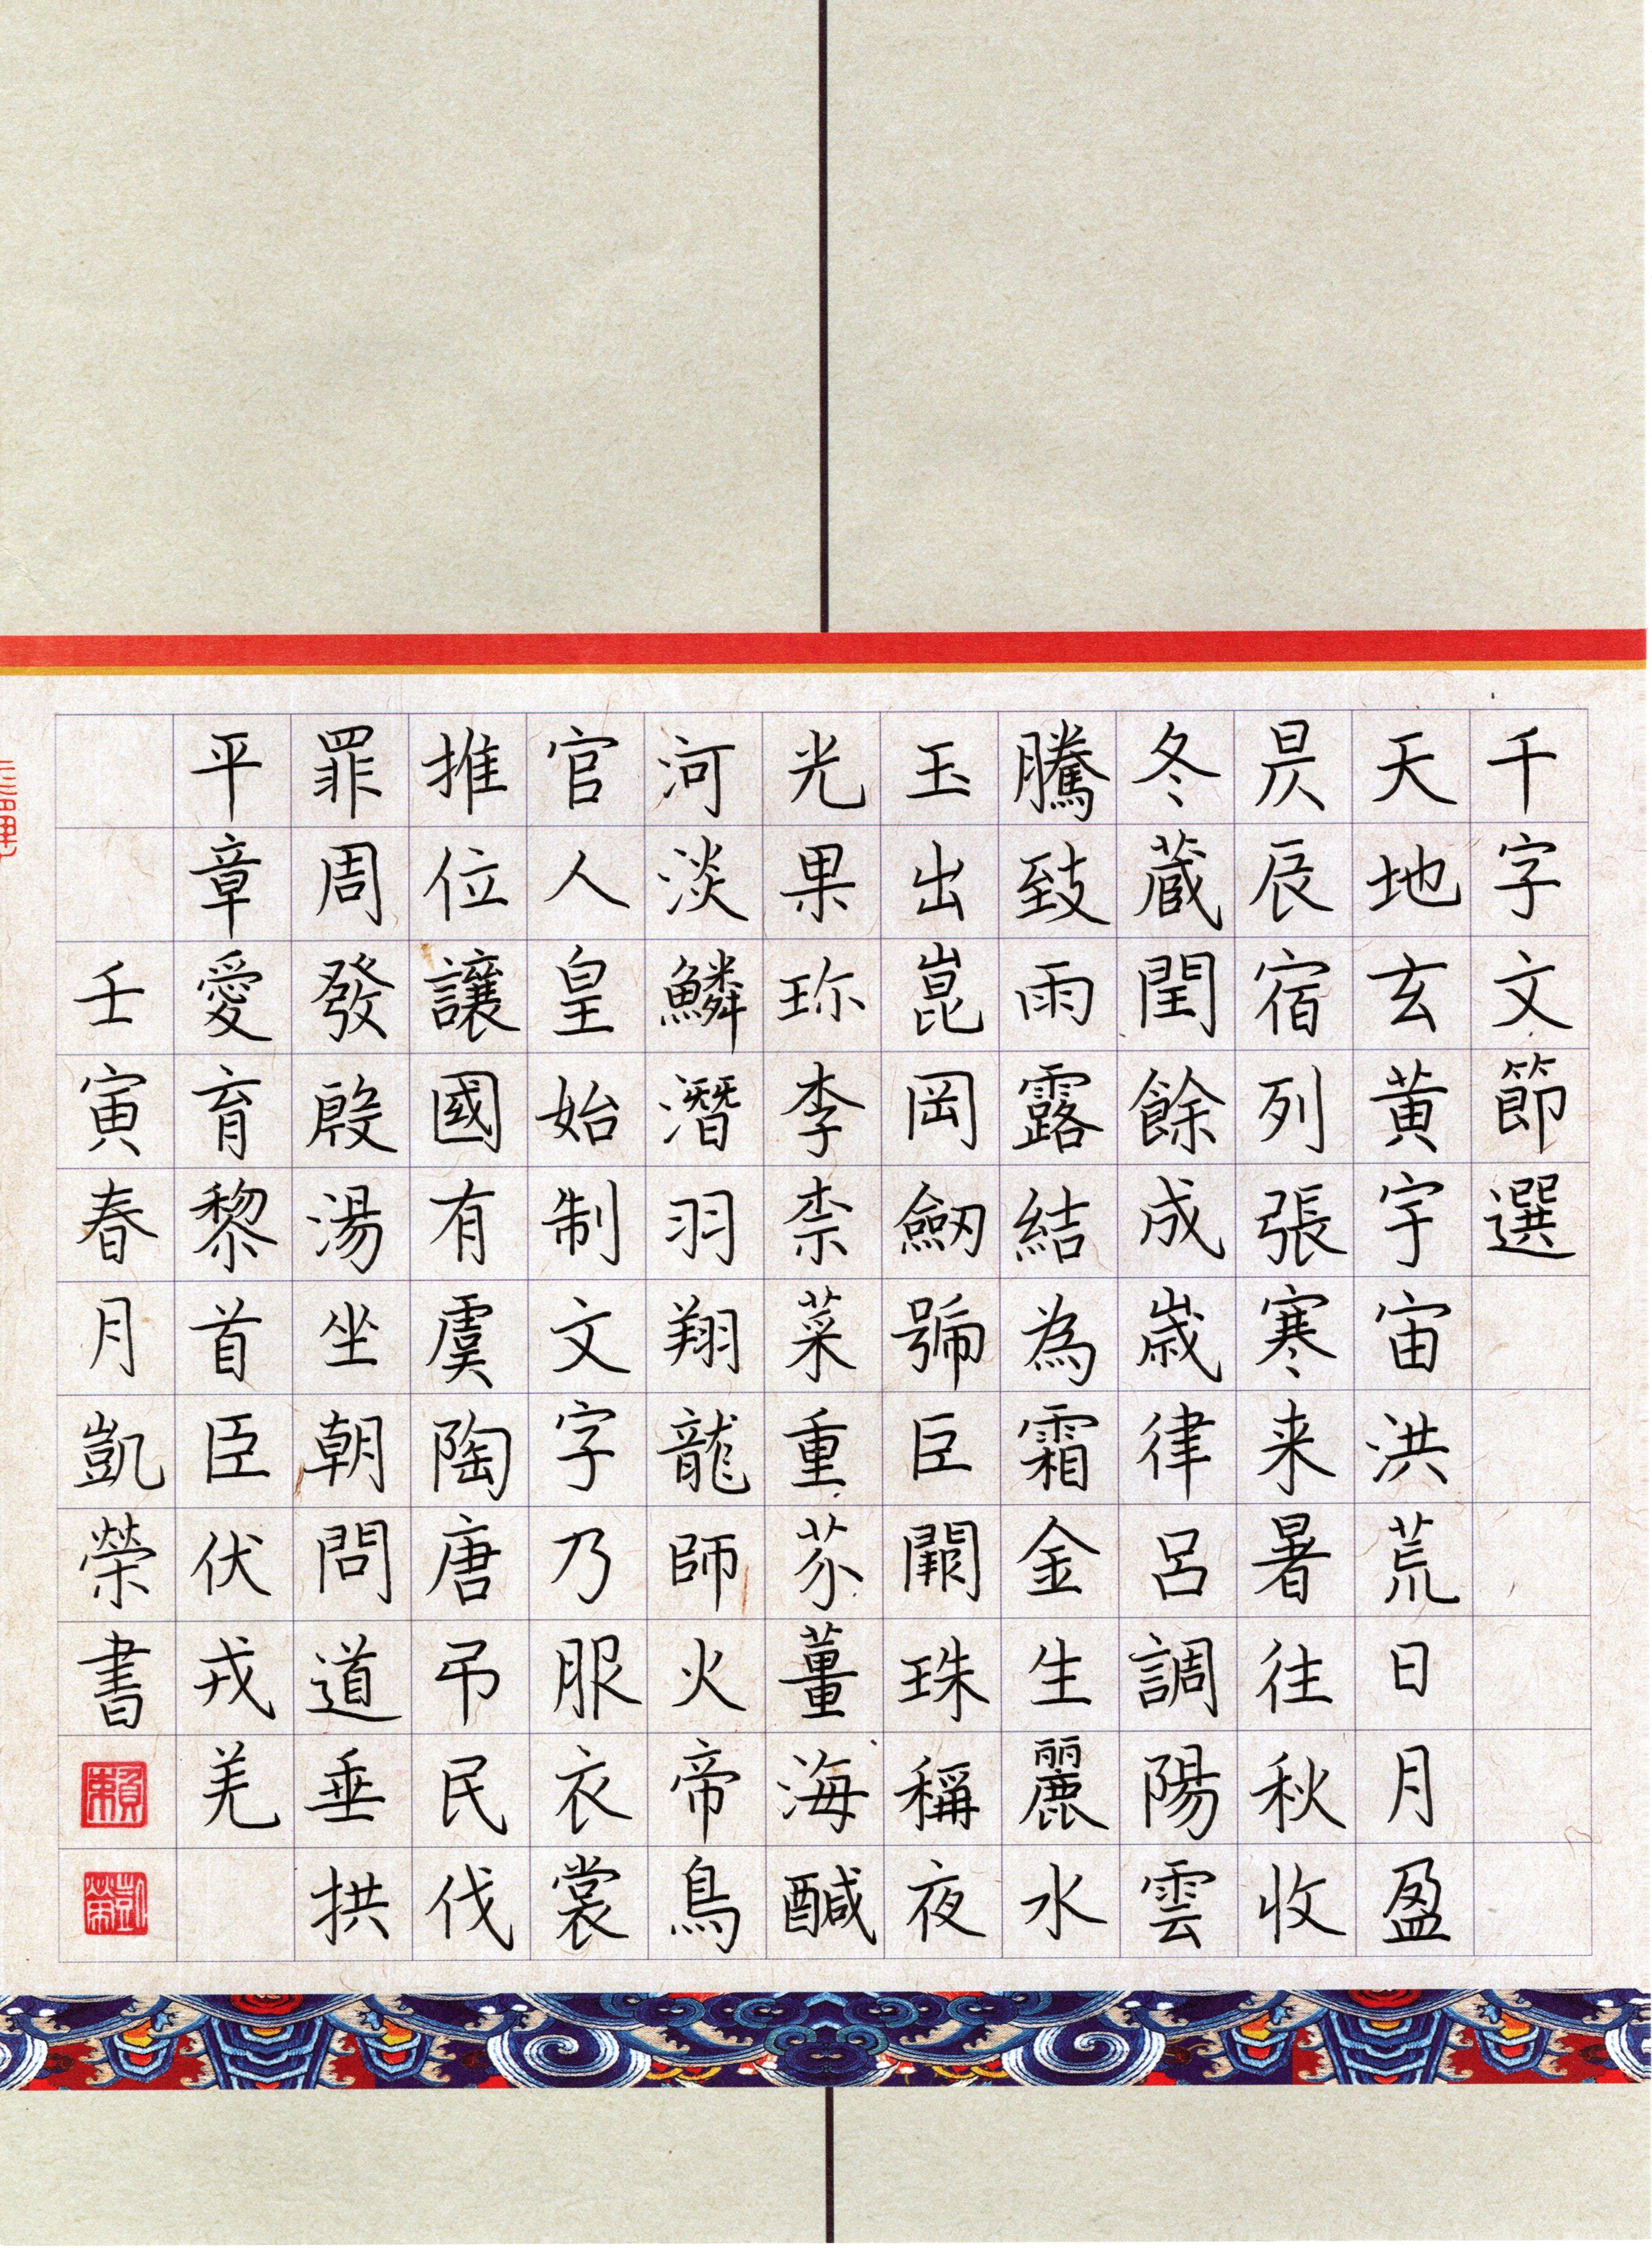 千字文節選
天地玄黃宇宙洪荒日月盈
昃辰宿列張寒来暑往秋收
冬蔵閏餘成歲律呂調陽雲
騰致雨露結為霜金生麗水
玉出崑岡劒號巨闕珠稱夜
光果珎李柰菜重芥薑海醎
河淡鱗潛羽翔龍師火帝鳥
官人皇始制文字乃服衣裳
推位讓國有虞陶唐弔民伐
罪周發殷湯坐朝問道垂拱
平章愛育黎首臣伏戎羌
壬寅春月凱榮書
賴
凱榮